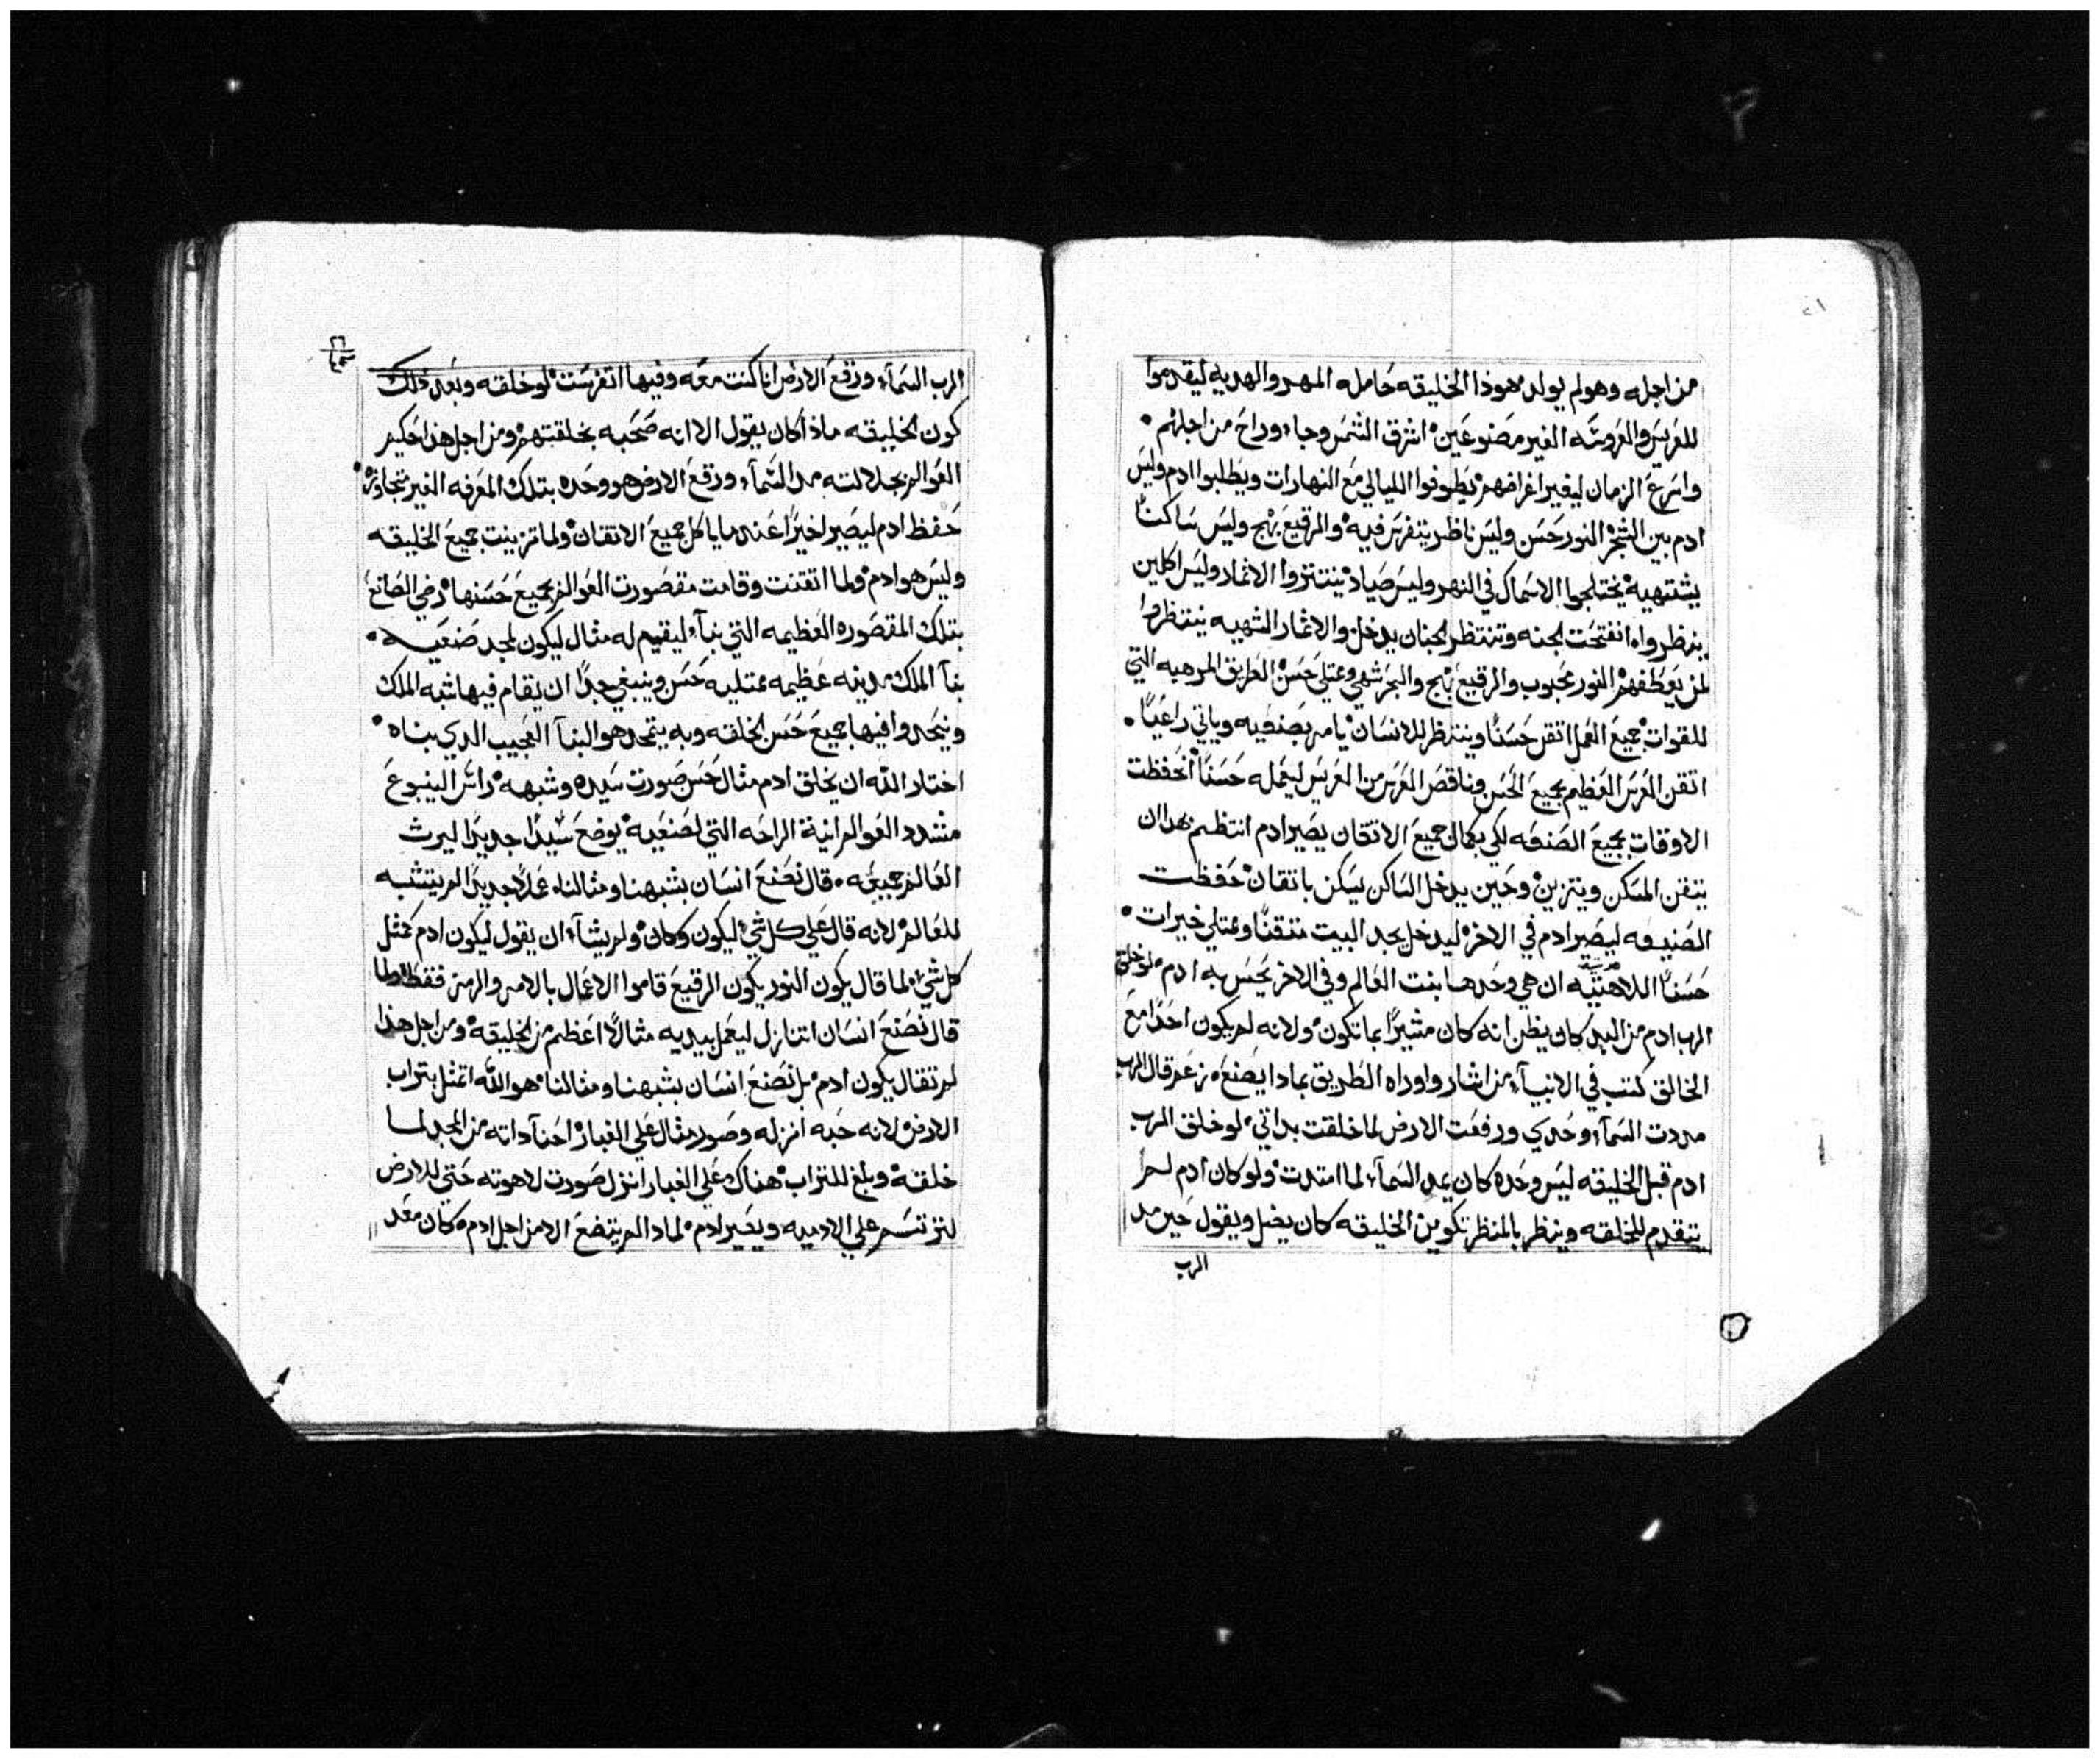 من اجله وهو لم يولد هوذا الخليقه حامله المهر والهديه ليقدموا
للعريس والعروسه الغير مصنوعين اشرق الشمس وجاء وراح من اجلهم
واسرع الزمان ليفير اغراضهم يطوفوا الليالي مع النهارات ويطلبوا ادم وليس
ادم بين الشجر النور حسن وليس ناظر يتفرس فيه والرقيع بهج وليس ساكنا
يشتهيه يختلجوا الاسماك في النهر وليس صياد ينتتروا الاثمار وليس اكلين
ينظرواه انفتحت الجنه وتنتظر الجنان يدخل والاثمار الشهيه ينتظروا
لمن يقطفهم النور محبوب والرقيع بهج والبحر شهي وممتلي حسن الطريق المرهبه التي
للقوات جميع العمل اتقن حسنا وينتظر للانسان يامر بصنفيه وياتي راعيا
اتقن العرس العظيم بجميع الحسن وناقص العرس من العريس ليعمله حسنا انحفظت
الاوقات بجميع الصنعه لكي بكمال جميع الاتقان يصير ادم انتظم بهدا ان
يتقن المسكن ويتزين وحين يدخل الساكن يسكن باتقان حفظت
الصنيعه ليصير ادم في الاخر ليدخل يجد البيت متقنا وممتلي خيرات
حسنا اللاهتيه ان هي وحدها بنت العالم وفي الاخر يحس به ادم لو خلق
الرب ادم من البدي كان يظن انه كان مشيرا بما تكون ولانه لم يكون احدا مع
الخالق كتب في الانبياء من اشار واوراه الطريق بمادا يصنع زعم قال الرب
مددت السماء وحدي ورفعت الارض لما خلقت بداتي لو خلق الرب
ادم قبل الخليقه ليس وحده كان يمد السماء لما امتدت ولو كان ادم لم
يتقدم للخلقه وينظر بالمنظر تكوين الخليقه كان يضل ويقول حين مد
الرب
الرب السماء ورقع الارض انا كنت معه وفيها اتفرست لو خلقه وبعد ذلك
كون الخليقه ماذا كان يقول الا انه صحبه بخلقتهم ومن اجل هذا حكيم
العوالم بجلالته مد السماء ورقع الارض هو وحده بتلك المعرفه الغير متجاوزه
حفظ ادم ليصير اخيرا عندما يكل جميع الاتقان ولما تزينت جميع الخليقه
وليس هو ادم ولما اتقنت وقامت مقصورت العوالم بجميع حسنها رضي الصانع
بتلك المقصوره العظيمه التي بناء ليقيم له مثال ليكون لمجد صنعيه
بنا الملك مدينه عظيمه ممتليه حسن وينبغي جدا ان يقام فيها شبه الملك
ويتحدوا فيها جميع حسن الخلقه وبه يتمجد هو البنا العجيب الدي بناه
اختار الله ان يخلق ادم مثال حسن صورت سيده وشبهه راس الينبوع
مشدد العوالم انية الراحه التي لصنعيه يوضع سيدا جديدا ليرث
العالم جميعه قال نصنع انسان بشبهنا ومثالنا عملا جديدا لم يتشبه
للعالم لانه قال علي كل شي ليكون وكان ولم يشاء ان يقول ليكون ادم كمثل
كل شي لما قال يكون النور يكون الرقيع قاموا الاعمال بالامر والرمز فقط ولما
قال نصنع انسان اتنازل ليعمل بيديه مثالا اعظم من الخليقه ومن اجل هذا
لم تقال يكون ادم بل نصنع انسان بشبهنا ومثالنا هو الله اتمثل بتراب
الارض لانه حبه انزله وصور مثال علي الغبار احنا داته من المجد لما
خلقه وبلغ للتراب هناك علي الغبار انزل صورت لاهوته حتي للارض
لترتسم علي الادميه ويصير ادم لمادا لم يتضع الا من اجل ادم كان معد